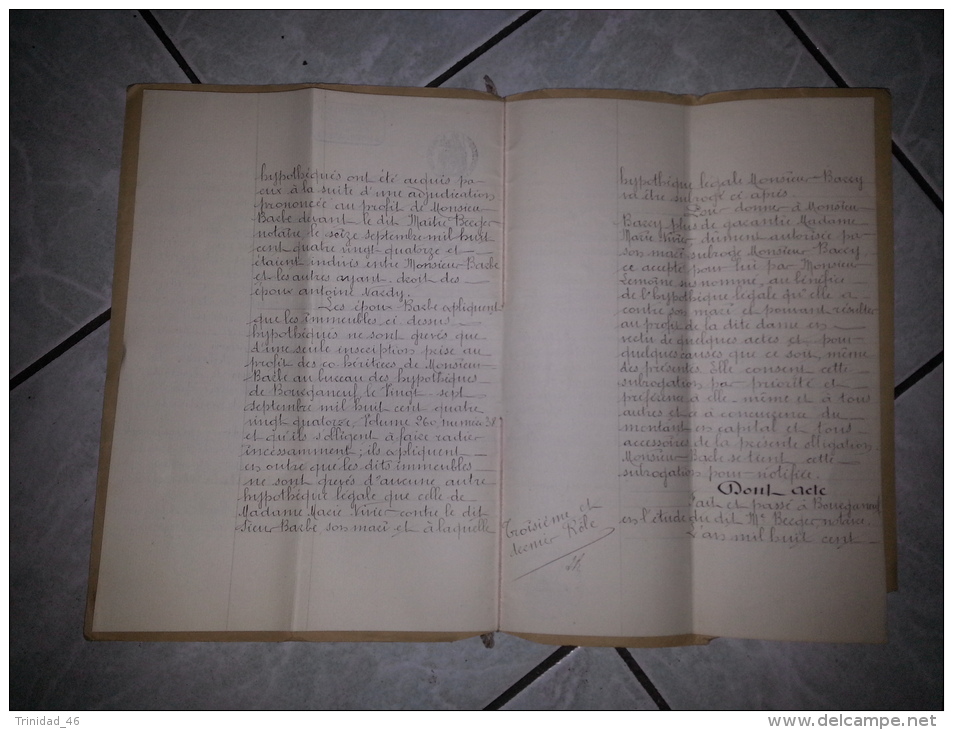 hypothéqués ont été acquis par
eux à la suite d'une adjudication
prononcée au profit de Monsieur
Barbe devant le dit Maître Berger
notaire le seize septembre mil huit
cent quatre vingt quatorze et
étaient indivis entre Monsieur Barbe
et les autres ayant droit des
époux antoine Nardy.
Les époux Barbe expliquent
que les immeubles ci dessus
hypothéqués ne sont grevés que
d'une seule inscription prise au
profit des co héritiers de Monsieur
Barbe au bureau des hypothèques
de Bourganeuf le Vingt-sept
septembre mil huit cent quatre
vingt quatorze, Volume 260, numéro 38
et qu'ils s'obligent à faire radier
incessamment; ils expliquent
en outre que les dits immeubles
ne sont grevés d'aucune autre
hypothèque légale que celle de
Madame Marie Vivier contre le dit
sieur Barbe son mari et à laquelle
hypothèque légale Monsieur Barry
va être subrogé ci après.
Pour donner à Monsieur
Barry plus de garantie Madame
Marie Vivier, dûment autorisée par
son mari subroge Monsieur Barry,
ce accepté pour lui par Monsieur
Lemoine sus nommé, au bénéfice
de l'hypothèque légale qu'elle a
contre son mari et pouvant résulter
au profit de la dite dame en
vertu de quelques actes et pour
quelques causes que ce soit, même
des présentes. Elle consent cette
subrogation par priorité et
préférence à elle-même et à tous
autres et à concurrence du
montant en capital et tous
accessoires de la présente obligation
Monsieur Barbe se tient cette
subrogation pour notifiée.
Dont acte
Fait et passé à Bourganeuf
en l'étude du dit Me Berger, notaire.
L'an mil huit cent
Troisième et
dernier Rôle
Trinidad_46
www.delcampe.net